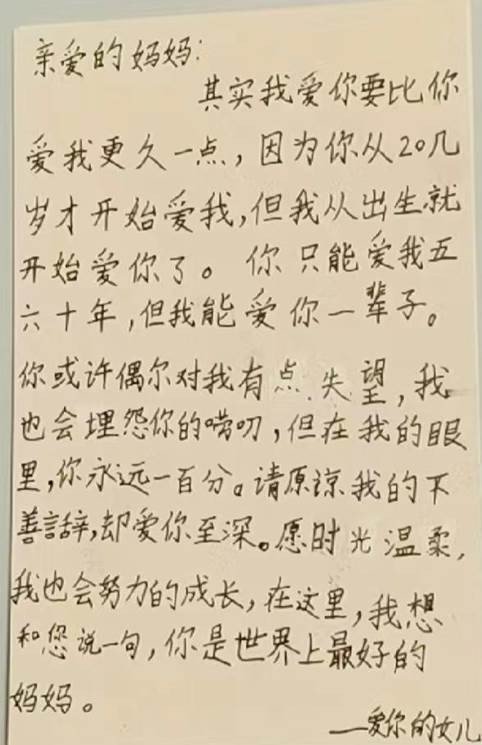 亲爱的妈妈:
其实我爱你要比你
爱我更久一点，因为你从20几
岁才开始爱我，但我从出生就
开始爱你了。你只能爱我五
六十年，但我能爱你一辈子。
你或许偶尔对我有点失望，我
也会埋怨你的唠叨，但在我的眼
里，你永远一百分。请原谅我的不
善言辞，却爱你至深。愿时光温柔，
我也会努力的成长，在这里，我想
和您说一句，你是世界上最好的
妈妈。
——爱你的女儿